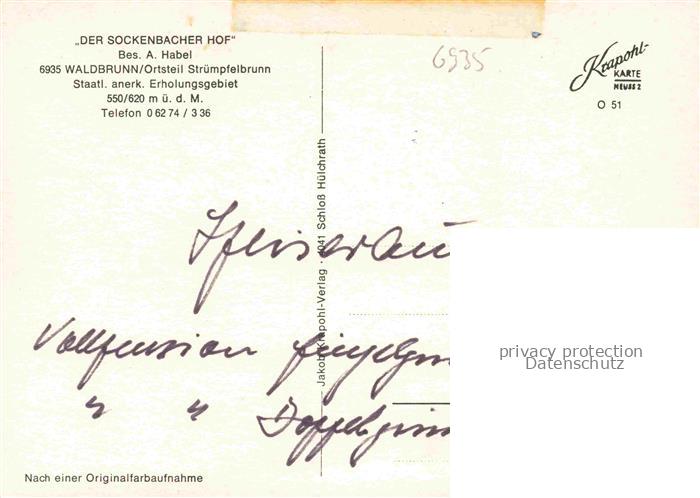 „DER SOCKENBACHER HOF“
Bes. A. Habel
6935 WALDBRUNN/Ortsteil Strümpfelbrunn
Staatl. anerk. Erholungsgebiet
550/620 m ü. d. M.
Telefon 0 62 74 / 3 36
6935
Krapohl-
KARTE
NEUSS 2
O 51
Jakob Krapohl-Verlag · 4041 Schloß Hülchrath
Vollpension
" " Doppelzimm
privacy protection
Datenschutz
Nach einer Originalfarbaufnahme